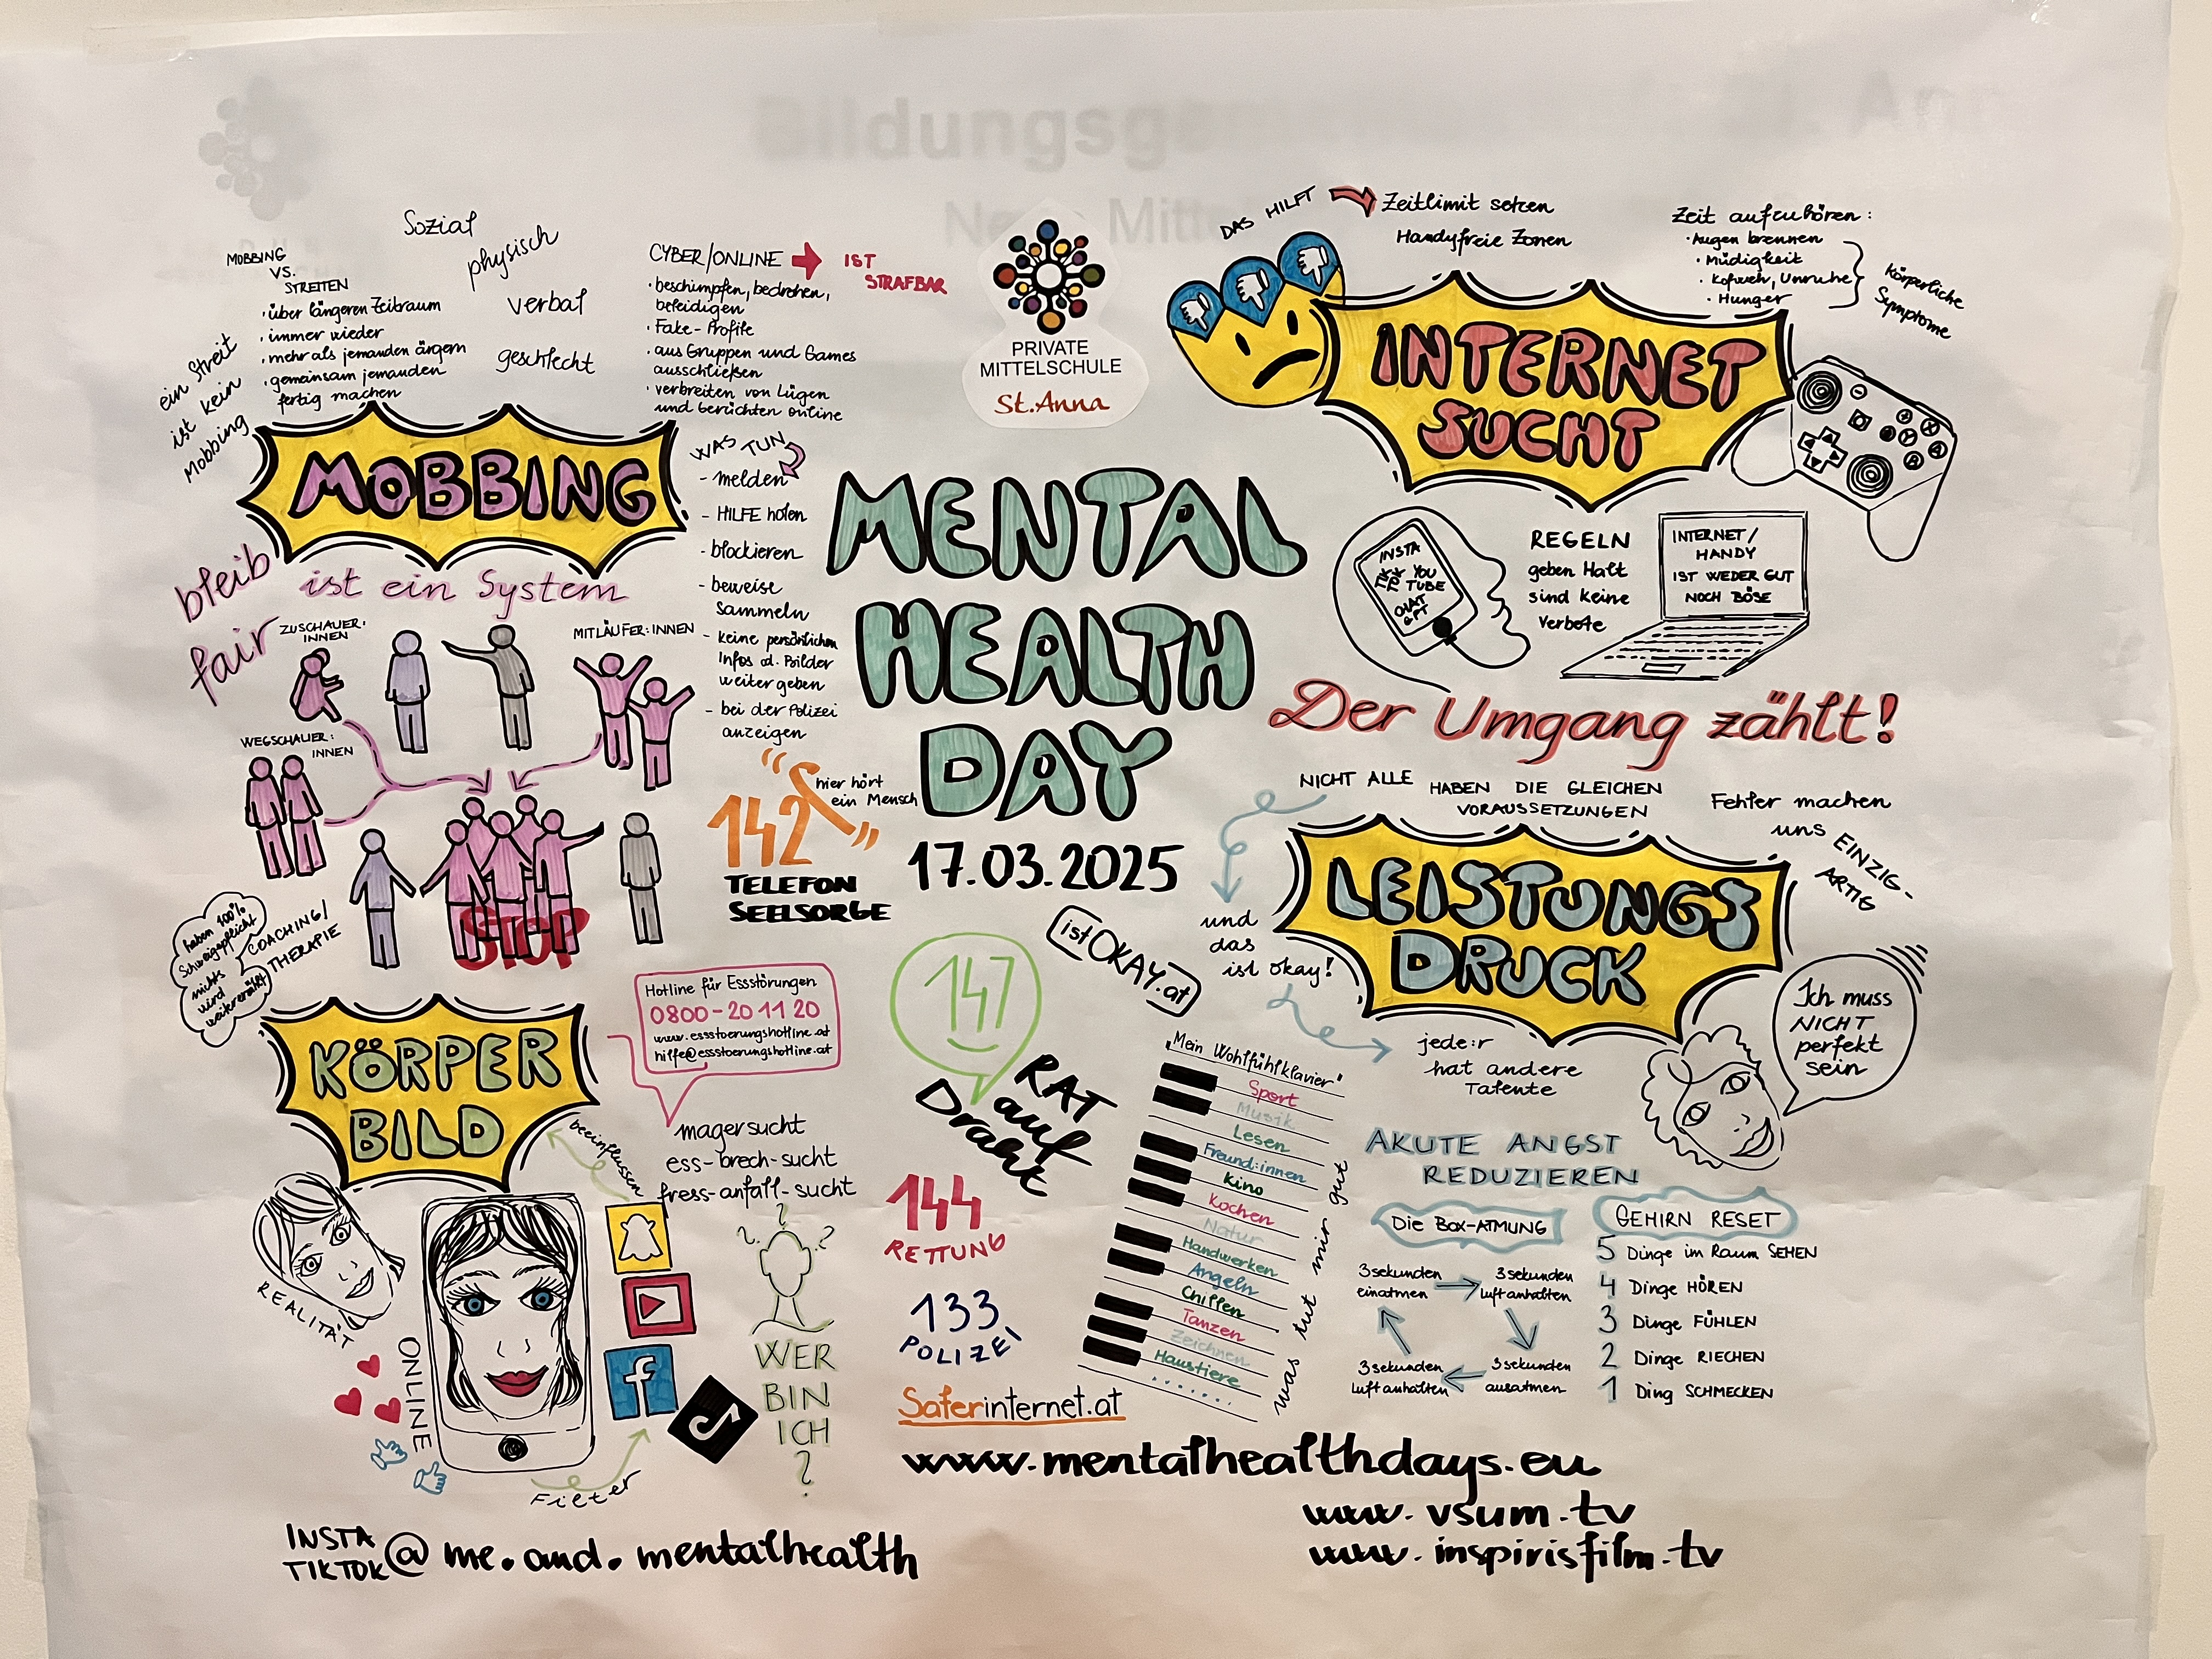 Bildungsg
MOBBING
VS.
STREITEN
ein Streit
ist kein
Mobbing
• über längeren Zeitraum
• immer wieder
• mehr als jemanden ärgern
• gemeinsam jemanden
fertig machen
Sozial
physisch
verbal
geschlecht
CYBER/ONLINE
IST
STRAFBAR
• beschimpfen, bedrohen,
beleidigen
• Fake-Profile
• aus Gruppen und Games
ausschließen
• verbreiten von Lügen
und Gerüchten online
MOBBING
ist ein System
bleib
fair
WAS TUN
- melden
- HILFE holen
- blockieren
- beweise
sammeln
- keine persönlichen
Infos od. Bilder
weiter geben
- bei der Polizei
anzeigen
ZUSCHAUER:
INNEN
MITLÄUFER:INNEN
WEGSCHAUER:
INNEN
STOP
COACHING/
THERAPIE
haben 100%
Schweigepflicht
nichts
wird
weitererzählt
PRIVATE
MITTELSCHULE
St. Anna
MENTAL
HEALTH
DAY
17.03.2025
142
hier hört
ein Mensch
TELEFON
SEELSORGE
147
RAT
auf
Draht
istOKAY.at
144
RETTUNG
133
POLIZEI
Saferinternet.at
DAS HILFT
Zeitlimit setzen
Handyfreie Zonen
Zeit aufzuhören:
• Augen brennen
• Müdigkeit
• Kofweh, Unruhe
• Hunger
körperliche
Symptome
INTERNET
SUCHT
INSTA
TIK
TOK
YOU
TUBE
CHAT
GPT
REGELN
geben Halt
sind keine
Verbote
INTERNET/
HANDY
IST WEDER GUT
NOCH BÖSE
Der Umgang zählt!
NICHT ALLE HABEN DIE GLEICHEN
VORAUSSETZUNGEN
und
das
ist okay!
Fehler machen
uns EINZIG-
ARTIG
LEISTUNGS
DRUCK
jede:r
hat andere
Talente
Ich muss
NICHT
perfekt
sein
"Mein Wohlfühlklavier"
Sport
Musik
Lesen
Freund:innen
Kino
Kochen
Natur
Handwerken
Angeln
Chillen
Tanzen
Zeichnen
Haustiere
.......
was tut mir gut
AKUTE ANGST
REDUZIEREN
Die BOX-ATMUNG
3 sekunden
einatmen
3 sekunden
luft anhalten
3 sekunden
ausatmen
3 sekunden
Luft anhalten
GEHIRN RESET
5 Dinge im Raum SEHEN
4 Dinge HÖREN
3 Dinge FÜHLEN
2 Dinge RIECHEN
1 Ding SCHMECKEN
KÖRPER
BILD
Hotline für Essstörungen
0800-20 11 20
www.essstoerungshotline.at
hilfe@essstoerungshotline.at
magersucht
ess-brech-sucht
fress-anfall-sucht
beeinflussen
REALITÄT
ONLINE
Filter
? ? ?
WER
BIN
ICH
?
www.mentalhealthdays.eu
www.vsum.tv
www.inspirisfilm.tv
INSTA
TIKTOK
@ me.and.mentalhealth